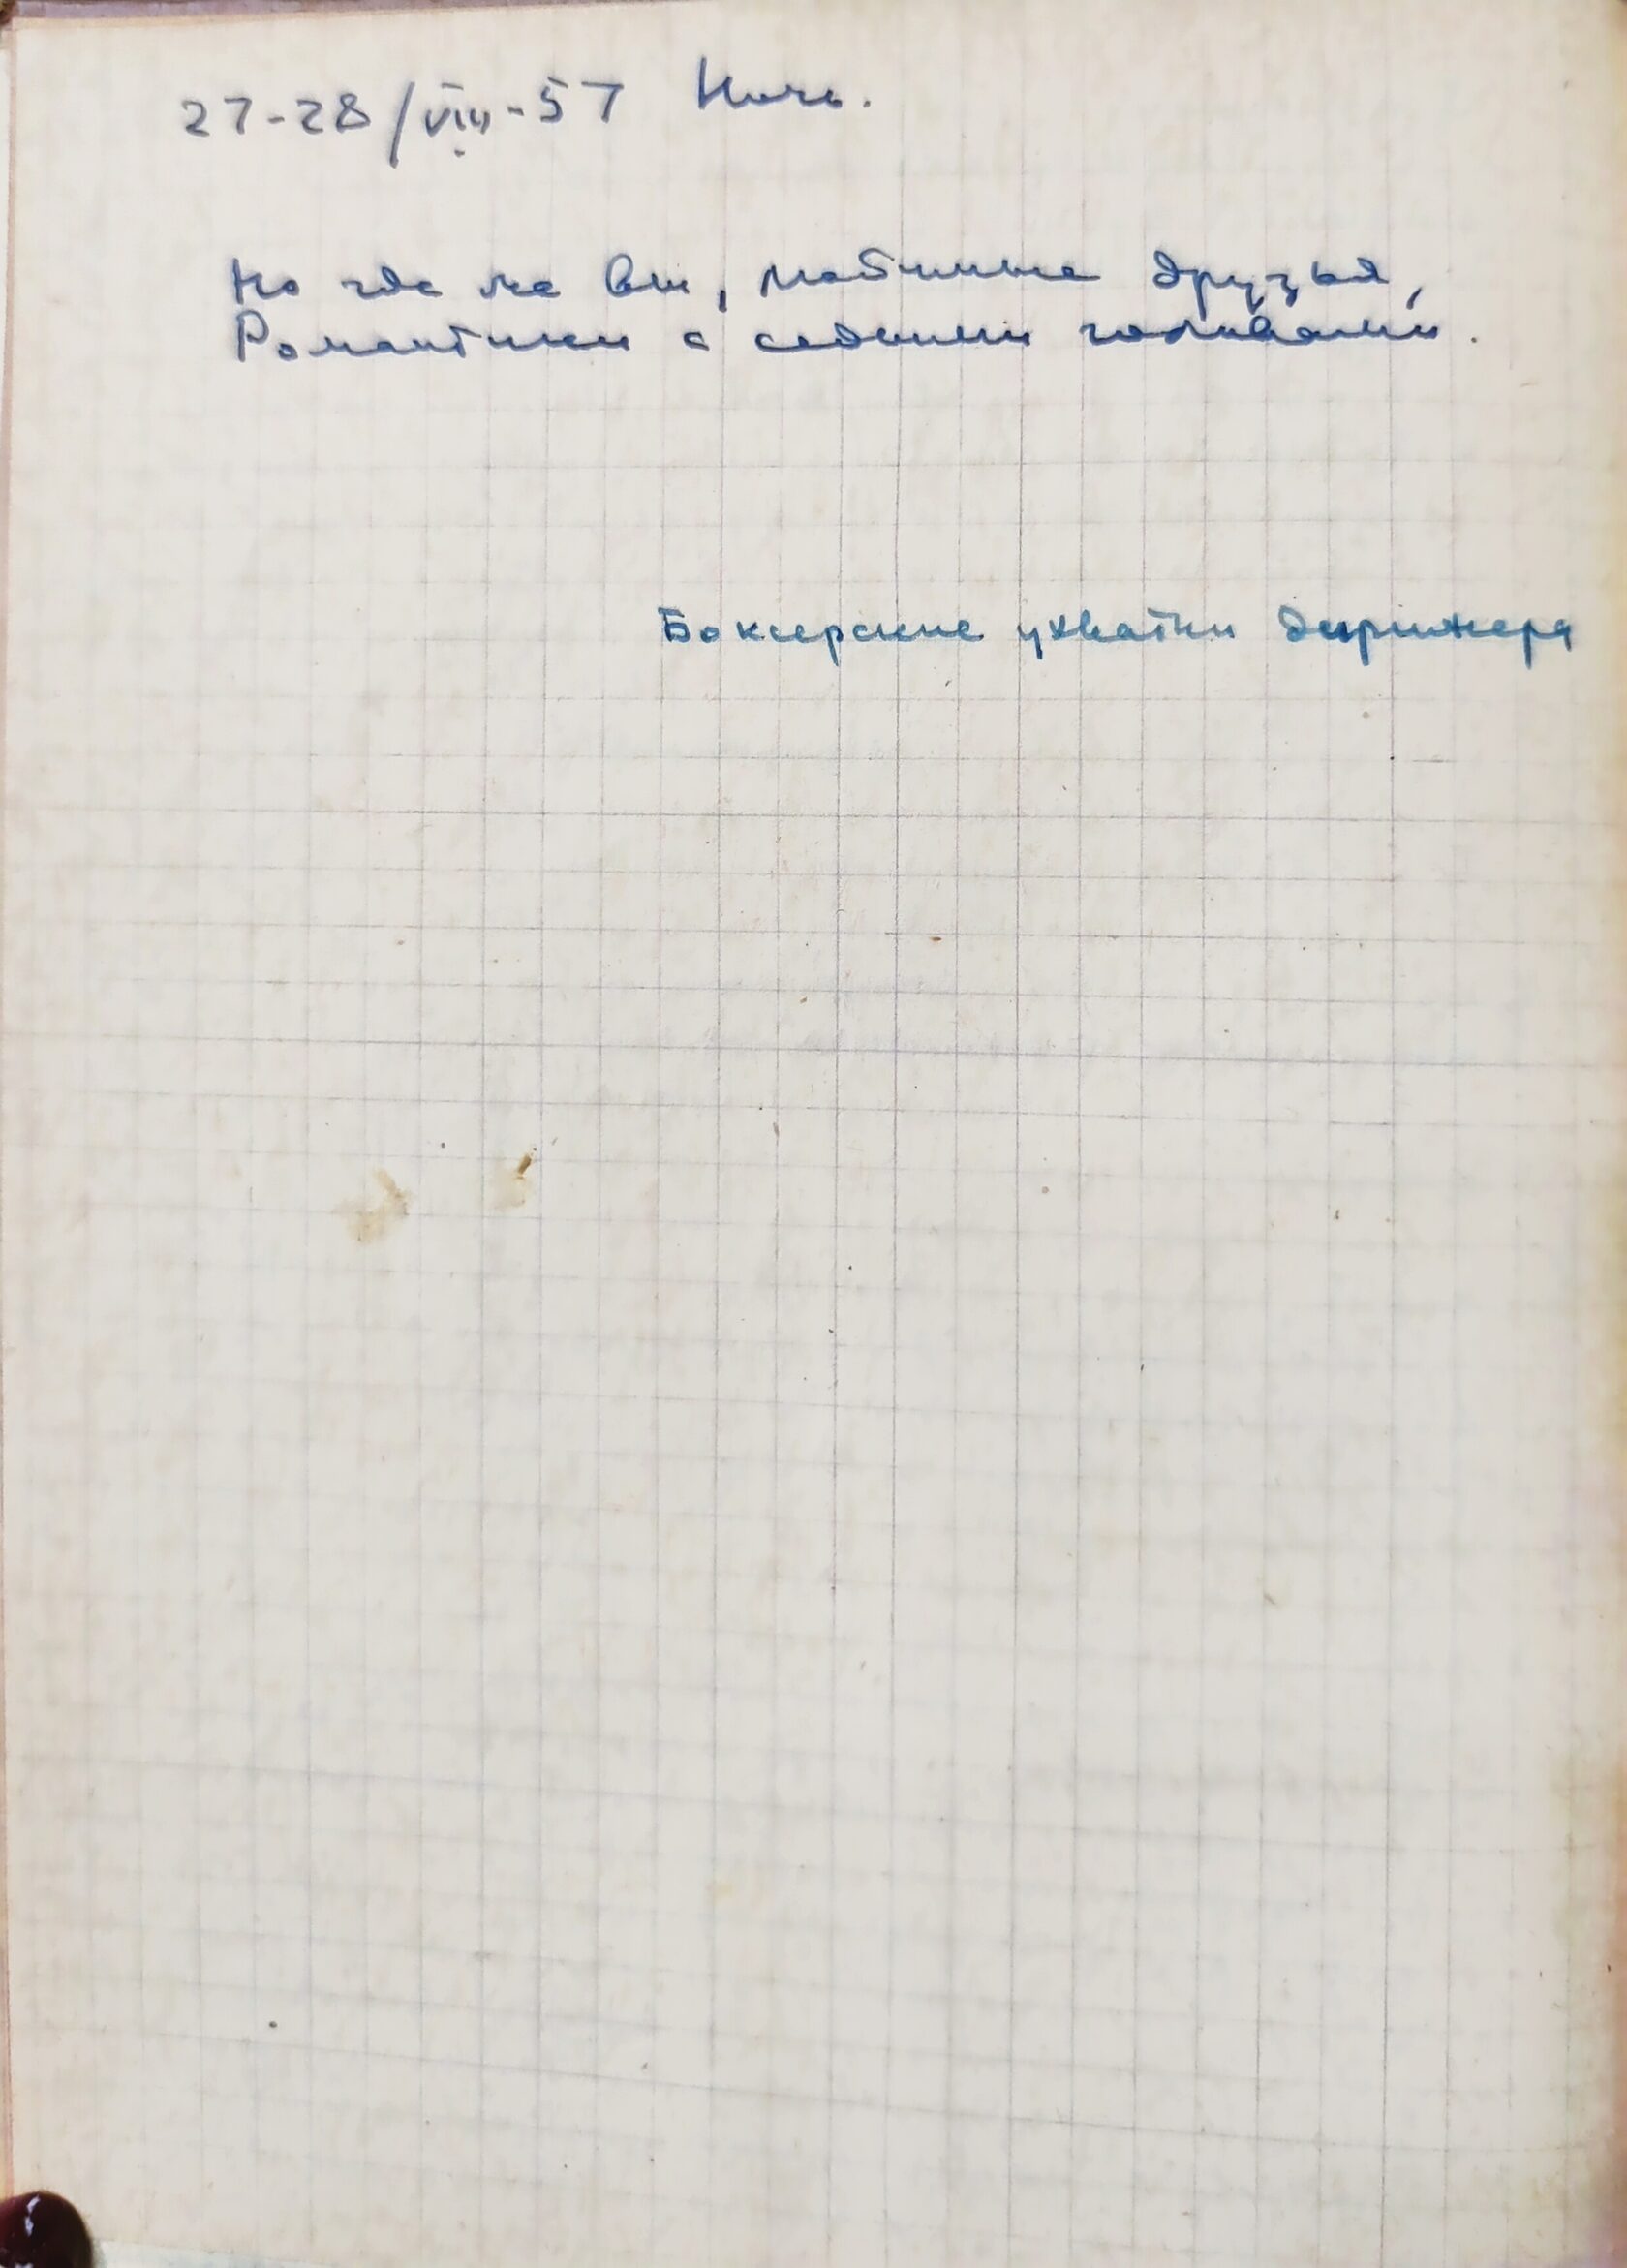 27-28/VIII-57 Ночь.
Но где же вы, любимые друзья,
Романтики с седыми головами.
Боксерские ухватки дирижера